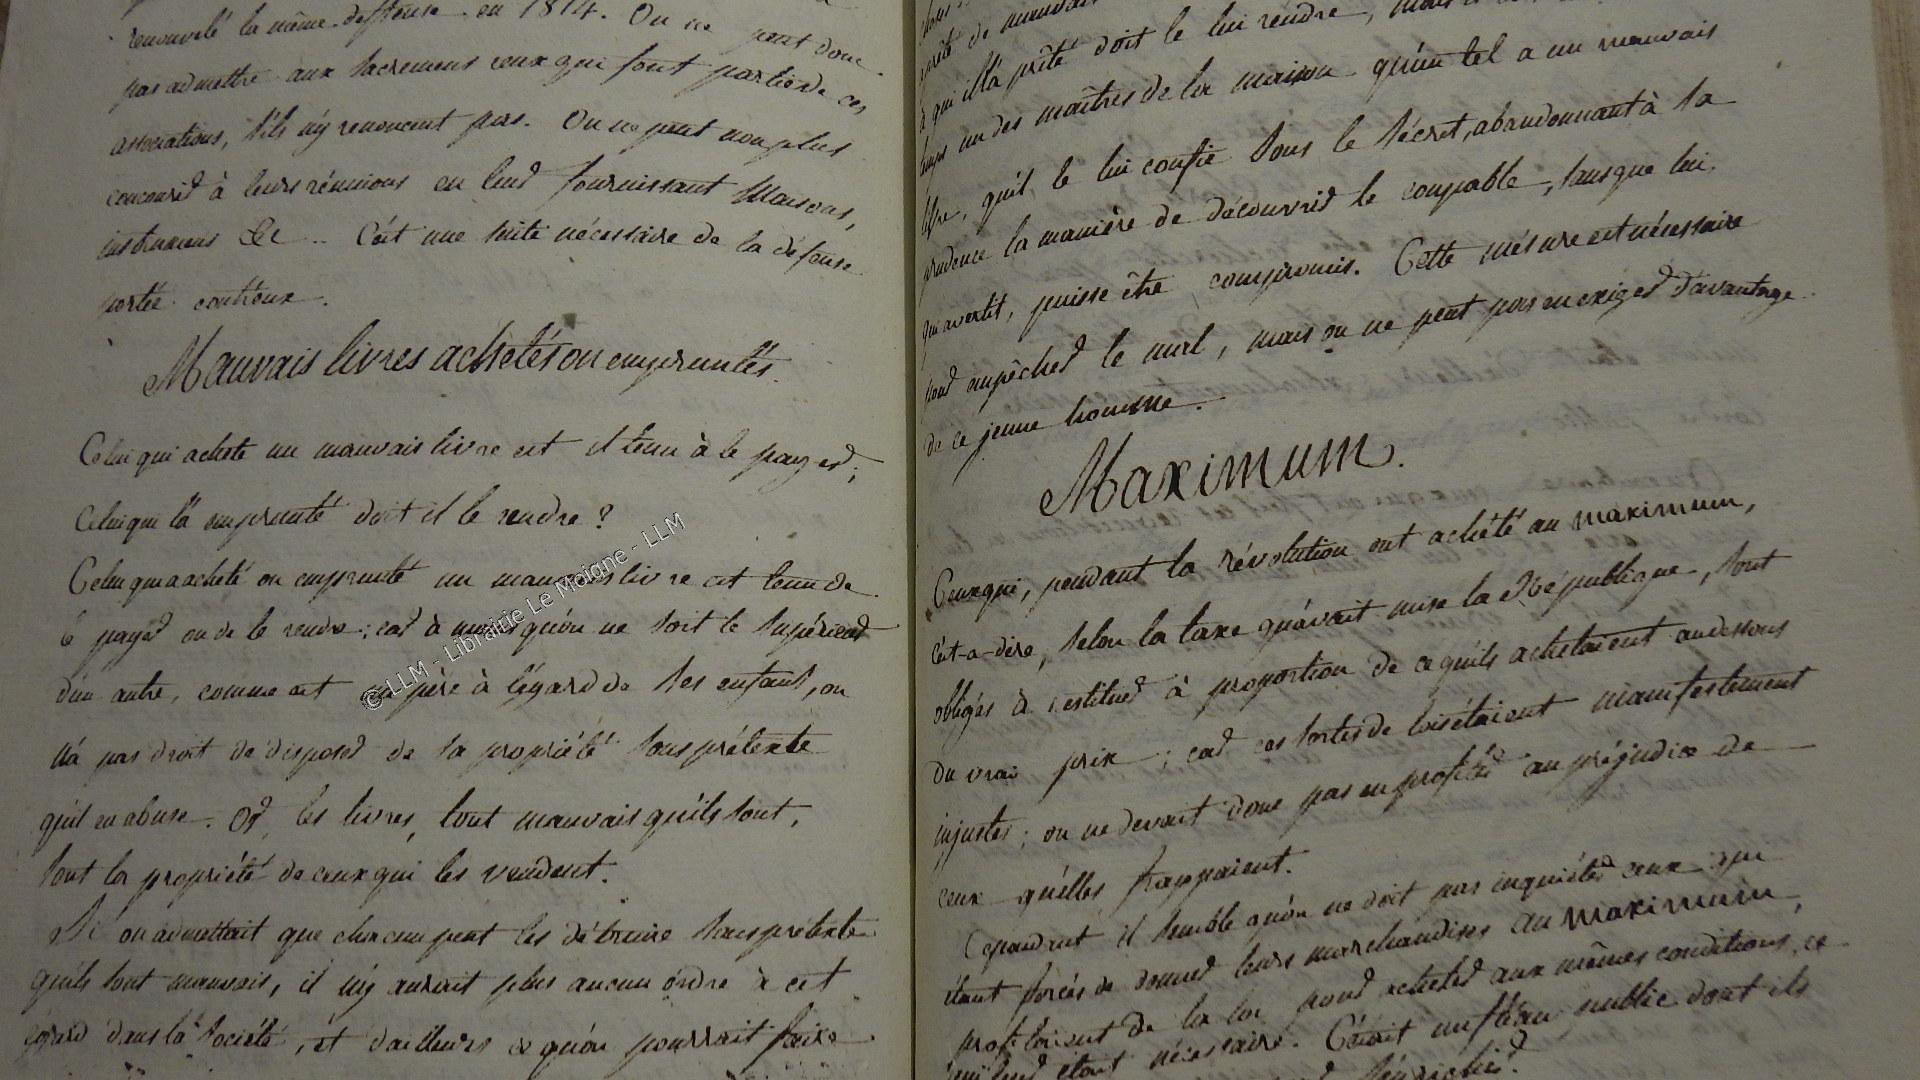 renouvelé la même deffense en 1814. On ne peut donc
pas admettre aux sacremens ceux qui font partie de ces
associations, s'ils n'y renoncent pas. On ne peut non plus
concourir à leurs réunions en leur fournissant Maisons,
instrumens &c .. C'est une suite nécessaire de la défense
portée contr'eux.
Mauvais livres achetés ou empruntés.
Celui qui achete un mauvais livre est il tenu à le payer;
Celui qui l'a emprunté doit il le rendre?
Celui qui a acheté ou emprunté un mauvais livre est tenu de
le payer ou de le rendre; car à moins qu'on ne soit le supérieur
d'un autre, comme est un père à l'égard de ses enfans, on
n'a pas droit de disposer de sa propriété sous prétexte
qu'il en abuse. Or, les livres, tout mauvais qu'ils sont,
sont la propriété de ceux qui les vendent.
Si on admettait que chacun peut les détruire sous prétexte
qu'ils sont mauvais, il n'y aurait plus aucun ordre à cet
égard dans la société, et d'ailleurs ce qu'on pourrait faire
© LLM - Librairie Le Moigne - LLM
de mauvais
à qui il l'a prêté doit le lui rendre, mais
un des maîtres de la maison qu'un tel a un mauvais
livre, qu'il le lui confie sous le sécret, abandonnant à sa
prudence la manière de découvrir le coupable, sans que lui,
qui avertit, puisse être compromis. Cette mésure est nécessaire
pour empêcher le mal, mais on ne peut pas en exiger d'avantage
de ce jeune homme.
Maximum.
Ceux qui, pendant la révolution ont acheté au maximum,
c'est-a-dire, selon la taxe qu'avait mise la République, sont
obligés à restituer à proportion de ce qu'ils achetaient au dessous
du vrai prix; car ces sortes de lois étaient manifestement
injustes; on ne devait donc pas en profiter au préjudice de
ceux qu'elles frappaient.
Cependant il semble qu'on ne doit pas inquiéter ceux qui
étant forcés de donner leurs marchandises au maximum,
profitoient de la loi pour acheter aux mêmes conditions, ce
qui leur étant nécessaire. C'était un fléau public dont ils